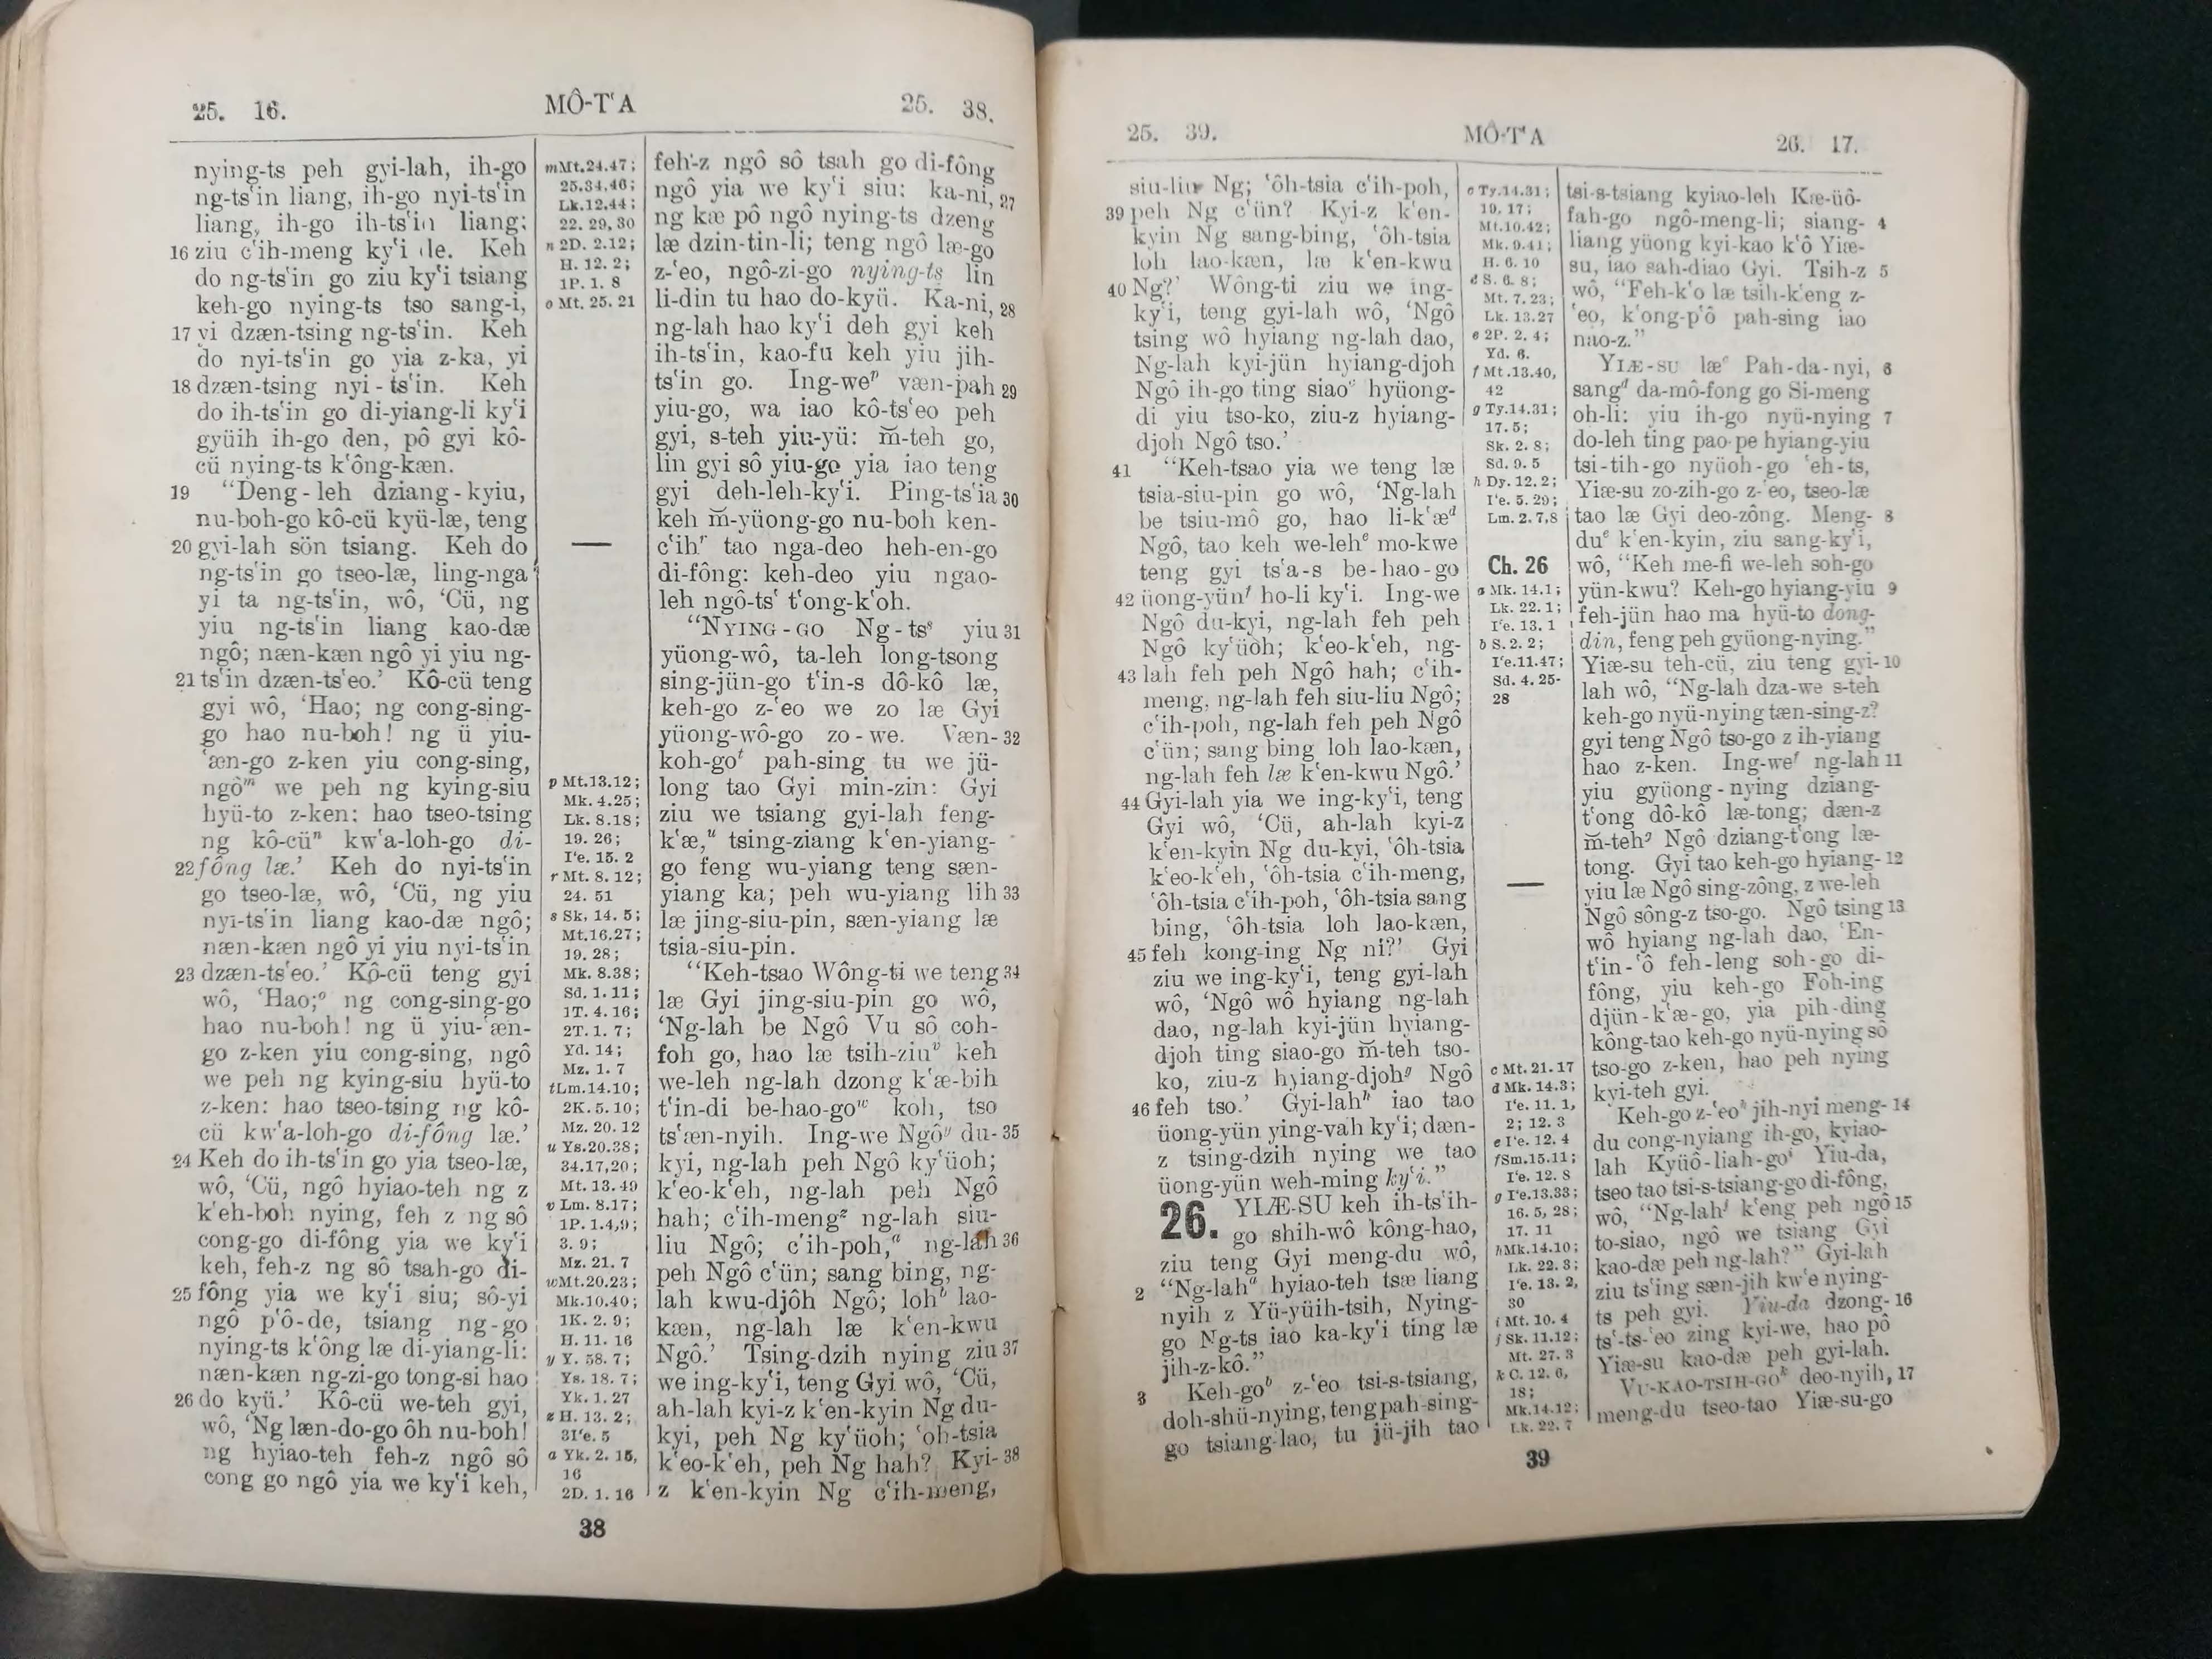 25. 16.
MÔ-TʻA
25. 38.
nying-ts peh gyi-lah, ih-go
ng-tsʻin liang, ih-go nyi-tsʻin
liang, ih-go ih-tsʻin liang;
16 ziu cʻih-meng kyʻi de. Keh
do ng-tsʻin go ziu kyʻi tsiang
keh-go nying-ts tso sang-i,
17 yi dzæn-tsing ng-tsʻin. Keh
do nyi-tsʻin go yia z-ka, yi
18 dzæn-tsing nyi-tsʻin. Keh
do ih-tsʻin go di-yiang-li kyʻi
gyüih ih-go den, pô gyi kô-
cü nying-ts kʻông-kæn.
19 “Deng-leh dziang-kyiu,
nu-boh-go kô-cü kyü-læ, teng
20 gyi-lah sön tsiang. Keh do
ng-tsʻin go tseo-læ, ling-nga
yi ta ng-tsʻin, wô, ‘Cü, ng
yiu ng-tsʻin liang kao-dæ
ngô; næn-kæn ngô yi yiu ng-
21 tsʻin dzæn-tsʻeo.’ Kô-cü teng
gyi wô, ‘Hao; ng cong-sing-
go hao nu-boh! ng ü yiu-
ʻæn-go z-ken yiu cong-sing,
ngô m we peh ng kying-siu
hyü-to z-ken: hao tseo-tsing
ng kô-cü n kwʻa-loh-go di-
22 fông læ.’ Keh do nyi-tsʻin
go tseo-læ, wô, ‘Cü, ng yiu
nyi-tsʻin liang kao-dæ ngô;
næn-kæn ngô yi yiu nyi-tsʻin
23 dzæn-tsʻeo.’ Kô-cü teng gyi
wô, ‘Hao; o ng cong-sing-go
hao nu-boh! ng ü yiu-ʻæn-
go z-ken yiu cong-sing, ngô
we peh ng kying-siu hyü-to
z-ken: hao tseo-tsing ng kô-
cü kwʻa-loh-go di-fông læ.’
24 Keh do ih-tsʻin go yia tseo-læ,
wô, ‘Cü, ngô hyiao-teh ng z
kʻeh-boh nying, feh z ng sô
cong-go di-fông yia we kyʻi
keh, feh-z ng sô tsah-go di-
25 fông yia we kyʻi siu; sô-yi
ngô pʻô-de, tsiang ng-go
nying-ts kʻông læ di-yiang-li:
næn-kæn ng-zi-go tong-si hao
26 do kyü.’ Kô-cü we-teh gyi,
wô, ‘Ng læn-do-go ôh nu-boh!
ng hyiao-teh feh-z ngô sô
cong go ngô yia we kyʻi keh,
m Mt.24.47;
25.34,46;
Lk.12.44;
22. 29, 30
n 2D. 2.12;
H. 12. 2;
1P. 1. 8
o Mt. 25. 21
p Mt.13.12;
Mk. 4.25;
Lk. 8.18;
19. 26;
Iʻe. 15. 2
r Mt. 8. 12;
24. 51
s Sk. 14. 5;
Mt.16.27;
19. 28;
Mk. 8.38;
Sd. 1. 11;
1T. 4. 16;
2T. 1. 7;
Yd. 14;
Mz. 1. 7
t Lm.14.10;
2K. 5. 10;
Mz. 20. 12
u Ys.20.38;
34.17,20;
Mt. 13. 49
v Lm. 8.17;
1P. 1.4,9;
3. 9;
Mz. 21. 7
w Mt.20.23;
Mk.10.40;
1K. 2. 9;
H. 11. 16
y Y. 58. 7;
Ys. 18. 7;
Yk. 1. 27
z H. 13. 2;
3Iʻe. 5
a Yk. 2. 15,
16
2D. 1. 16
feh-z ngô sô tsah go di-fông
ngô yia we kyʻi siu: ka-ni, 27
ng kæ pô ngô nying-ts dzeng
læ dzin-tin-li; teng ngô læ-go
z-ʻeo, ngô-zi-go nying-ts lin
li-din tu hao do-kyü. Ka-ni, 28
ng-lah hao kyʻi deh gyi keh
ih-tsʻin, kao-fu keh yiu jih-
tsʻin go. Ing-we p væn-pah 29
yiu-go, wa iao kô-tsʻeo peh
gyi, s-teh yiu-yü: m̆-teh go,
lin gyi sô yiu-go yia iao teng
gyi deh-leh-kyʻi. Ping-tsʻia 30
keh m̆-yüong-go nu-boh ken-
cʻih r tao nga-deo heh-en-go
di-fông: keh-deo yiu ngao-
leh ngô-tsʻ tʻong-kʻoh.
“NYING-GO Ng-ts s yiu 31
yüong-wô, ta-leh long-tsong
sing-jün-go tʻin-s dô-kô læ,
keh-go z-ʻeo we zo læ Gyi
yüong-wô-go zo-we. Væn- 32
koh-go t pah-sing tu we jü-
long tao Gyi min-zin: Gyi
ziu we tsiang gyi-lah feng-
kʻæ, u tsing-ziang kʻen-yiang-
go feng wu-yiang teng sæn-
yiang ka; peh wu-yiang lih 33
læ jing-siu-pin, sæn-yiang læ
tsia-siu-pin.
“Keh-tsao Wông-ti we teng 34
læ Gyi jing-siu-pin go wô,
‘Ng-lah be Ngô Vu sô coh-
foh go, hao læ tsih-ziu v keh
we-leh ng-lah dzong kʻæ-bih
tʻin-di be-hao-go w koh, tso
tsʻæn-nyih. Ing-we Ngô y du- 35
kyi, ng-lah peh Ngô kyʻüoh;
kʻeo-kʻeh, ng-lah peh Ngô
hah; cʻih-meng z ng-lah siu-
liu Ngô; cʻih-poh, a ng-lah 36
peh Ngô cʻün; sang bing, ng-
lah kwu-djôh Ngô; loh b lao-
kæn, ng-lah læ kʻen-kwu
Ngô.’ Tsing-dzih nying ziu 37
we ing-kyʻi, teng Gyi wô, ‘Cü,
ah-lah kyi-z kʻen-kyin Ng du-
kyi, peh Ng kyʻüoh; ʻôh-tsia
kʻeo-kʻeh, peh Ng hah? Kyi- 38
z kʻen-kyin Ng cʻih-meng,
38
25. 39.
MÔ-TʻA
26. 17.
siu-liu Ng; ʻôh-tsia cʻih-poh,
39 peh Ng cʻün? Kyi-z kʻen-
kyin Ng sang-bing, ʻôh-tsia
loh lao-kæn, læ kʻen-kwu
40 Ng?’ Wông-ti ziu we ing-
kyʻi, teng gyi-lah wô, ‘Ngô
tsing wô hyiang ng-lah dao,
Ng-lah kyi-jün hyiang-djoh
Ngô ih-go ting siao hyüong-
di yiu tso-ko, ziu-z hyiang-
djoh Ngô tso.’
41 “Keh-tsao yia we teng læ
tsia-siu-pin go wô, ‘Ng-lah
be tsiu-mô go, hao li-kʻæ d
Ngô, tao keh we-leh e mo-kwe
teng gyi tsʻa-s be-hao-go
42 üong-yün f ho-li kyʻi. Ing-we
Ngô du-kyi, ng-lah feh peh
Ngô kyʻüoh; kʻeo-kʻeh, ng-
43 lah feh peh Ngô hah; cʻih-
meng, ng-lah feh siu-liu Ngô;
cʻih-poh, ng-lah feh peh Ngô
cʻün; sang bing loh lao-kæn,
ng-lah feh læ kʻen-kwu Ngô.’
44 Gyi-lah yia we ing-kyʻi, teng
Gyi wô, ‘Cü, ah-lah kyi-z
kʻen-kyin Ng du-kyi, ʻôh-tsia
kʻeo-kʻeh, ʻôh-tsia cʻih-meng,
ʻôh-tsia cʻih-poh, ʻôh-tsia sang
bing, ʻôh-tsia loh lao-kæn,
45 feh kong-ing Ng ni?’ Gyi
ziu we ing-kyʻi, teng gyi-lah
wô, ‘Ngô wô hyiang ng-lah
dao, ng-lah kyi-jün hyiang-
djoh ting siao-go m̆-teh tso-
ko, ziu-z hyiang-djoh g Ngô
46 feh tso.’ Gyi-lah h iao tao
üong-yün ying-vah kyʻi; dæn-
z tsing-dzih nying we tao
üong-yün weh-ming kyʻi.”
26. YIÆ-SU keh ih-tsʻih-
go shih-wô kông-hao,
ziu teng Gyi meng-du wô,
2 “Ng-lah a hyiao-teh tsæ liang
nyih z Yü-yüih-tsih, Nying-
go Ng-ts iao ka-kyʻi ting læ
jih-z-kô.”
3 Keh-go b z-ʻeo tsi-s-tsiang,
doh-shü-nying, teng pah-sing-
go tsiang-lao, tu jü-jih tao
c Ty.14.31;
19. 17;
Mt.10.42;
Mk. 9.41;
H. 6. 10
d S. 6. 8;
Mt. 7. 23;
Lk. 13.27
e 2P. 2. 4;
Yd. 6.
f Mt.13.40,
42
g Ty.14.31;
17. 5;
Sk. 2. 8;
Sd. 9. 5
h Dy. 12. 2;
Iʻe. 5. 29;
Lm. 2. 7,8
Ch. 26
a Mk. 14.1;
Lk. 22. 1;
Iʻe. 13. 1
b S. 2. 2;
Iʻe.11.47;
Sd. 4. 25-
28
c Mt. 21. 17
d Mk. 14.3;
Iʻe. 11. 1,
2; 12. 3
e Iʻe. 12. 4
f Sm.15.11;
Iʻe. 12. 8
g Iʻe.13.33;
16. 5, 28;
17. 11
h Mk.14.10;
Lk. 22. 3;
Iʻe. 13. 2,
30
i Mt. 10. 4
j Sk. 11.12;
Mt. 27. 3
k C. 12. 6,
18;
Mk.14.12;
Lk. 22. 7
tsi-s-tsiang kyiao-leh Kæ-üô-
fah-go ngô-meng-li; siang- 4
liang yüong kyi-kao kʻô Yiæ-
su, iao sah-diao Gyi. Tsih-z 5
wô, “Feh-kʻo læ tsih-kʻeng z-
ʻeo, kʻong-pʻô pah-sing iao
nao-z.”
YIÆ-SU læ c Pah-da-nyi, 6
sang d da-mô-fong go Si-meng
oh-li: yiu ih-go nyü-nying 7
do-leh ting pao-pe hyiang-yiu
tsi-tih-go nyüoh-go ʻeh-ts,
Yiæ-su zo-zih-go z-ʻeo, tseo-læ
tao læ Gyi deo-zông. Meng- 8
du e kʻen-kyin, ziu sang-kyʻi,
wô, “Keh me-fi we-leh soh-go
yün-kwu? Keh-go hyiang-yiu 9
feh-jün hao ma hyü-to dong-
din, feng peh gyüong-nying.”
Yiæ-su teh-cü, ziu teng gyi- 10
lah wô, “Ng-lah dza-we s-teh
keh-go nyü-nying tæn-sing-z?
gyi teng Ngô tso-go z ih-yiang
hao z-ken. Ing-we f ng-lah 11
yiu gyüong-nying dziang-
tʻong dô-kô læ-tong; dæn-z
m̆-teh g Ngô dziang-tʻong læ-
tong. Gyi tao keh-go hyiang- 12
yiu læ Ngô sing-zông, z we-leh
Ngô sông-z tso-go. Ngô tsing 13
wô hyiang ng-lah dao, ʻEn-
tʻin-ʻô feh-leng soh-go di-
fông, yiu keh-go Foh-ing
djün-kʻæ-go, yia pih-ding
kông-tao keh-go nyü-nying sô
tso-go z-ken, hao peh nying
kyi-teh gyi.
Keh-go z-ʻeo h jih-nyi meng- 14
du cong-nyiang ih-go, kyiao-
lah Kyüô-liah-go i Yiu-da,
tseo tao tsi-s-tsiang-go di-fông,
wô, “Ng-lah j kʻeng peh ngô 15
to-siao, ngô we tsiang Gyi
kao-dæ peh ng-lah?” Gyi-lah
ziu tsʻing sæn-jih kwʻe nying-
ts peh gyi. Yiu-da dzong- 16
tsʻ-ts-ʻeo zing kyi-we, hao pô
Yiæ-su kao-dæ peh gyi-lah.
VU-KAO-TSIH-GO k deo-nyih, 17
meng-du tseo-tao Yiæ-su-go
39